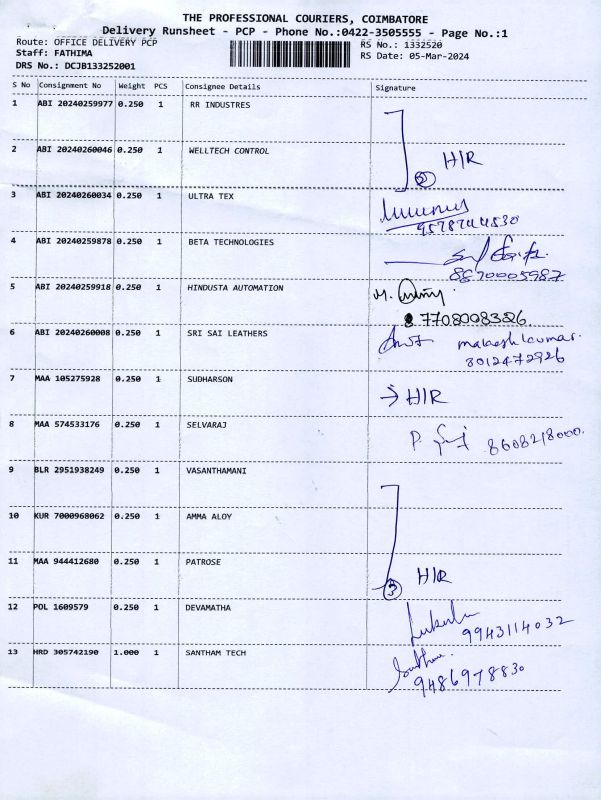 THE PROFESSIONAL COURIERS, COIMBATORE
Delivery Runsheet - PCP - Phone No.:0422-3505555 - Page No.:1
Route: OFFICE DELIVERY PCP
RS No.: 1332520
Staff: FATHIMA
RS Date: 05-Mar-2024
DRS No.: DCJB133252001
S No Consignment No Weight PCS Consignee Details Signature
1 ABI 20240259977 0.250 1 RR INDUSTRES
2 ABI 20240260046 0.250 1 WELLTECH CONTROL H/R
3 ABI 20240260034 0.250 1 ULTRA TEX
4 ABI 20240259878 0.250 1 BETA TECHNOLOGIES
8870005987
5 ABI 20240259918 0.250 1 HINDUSTA AUTOMATION
7708008326.
6 ABI 20240260008 0.250 1 SRI SAI LEATHERS
maheshkumar.
8012472926
7 MAA 105275928 0.250 1 SUDHARSON → H/R
8 MAA 574533176 0.250 1 SELVARAJ 8608218000.
9 BLR 2951938249 0.250 1 VASANTHAMANI
10 KUR 7000968062 0.250 1 AMMA ALOY
11 MAA 944412680 0.250 1 PATROSE
3 H/R
12 POL 1609579 0.250 1 DEVAMATHA
9943114032
13 HRD 305742190 1.000 1 SANTHAM TECH
9486978830